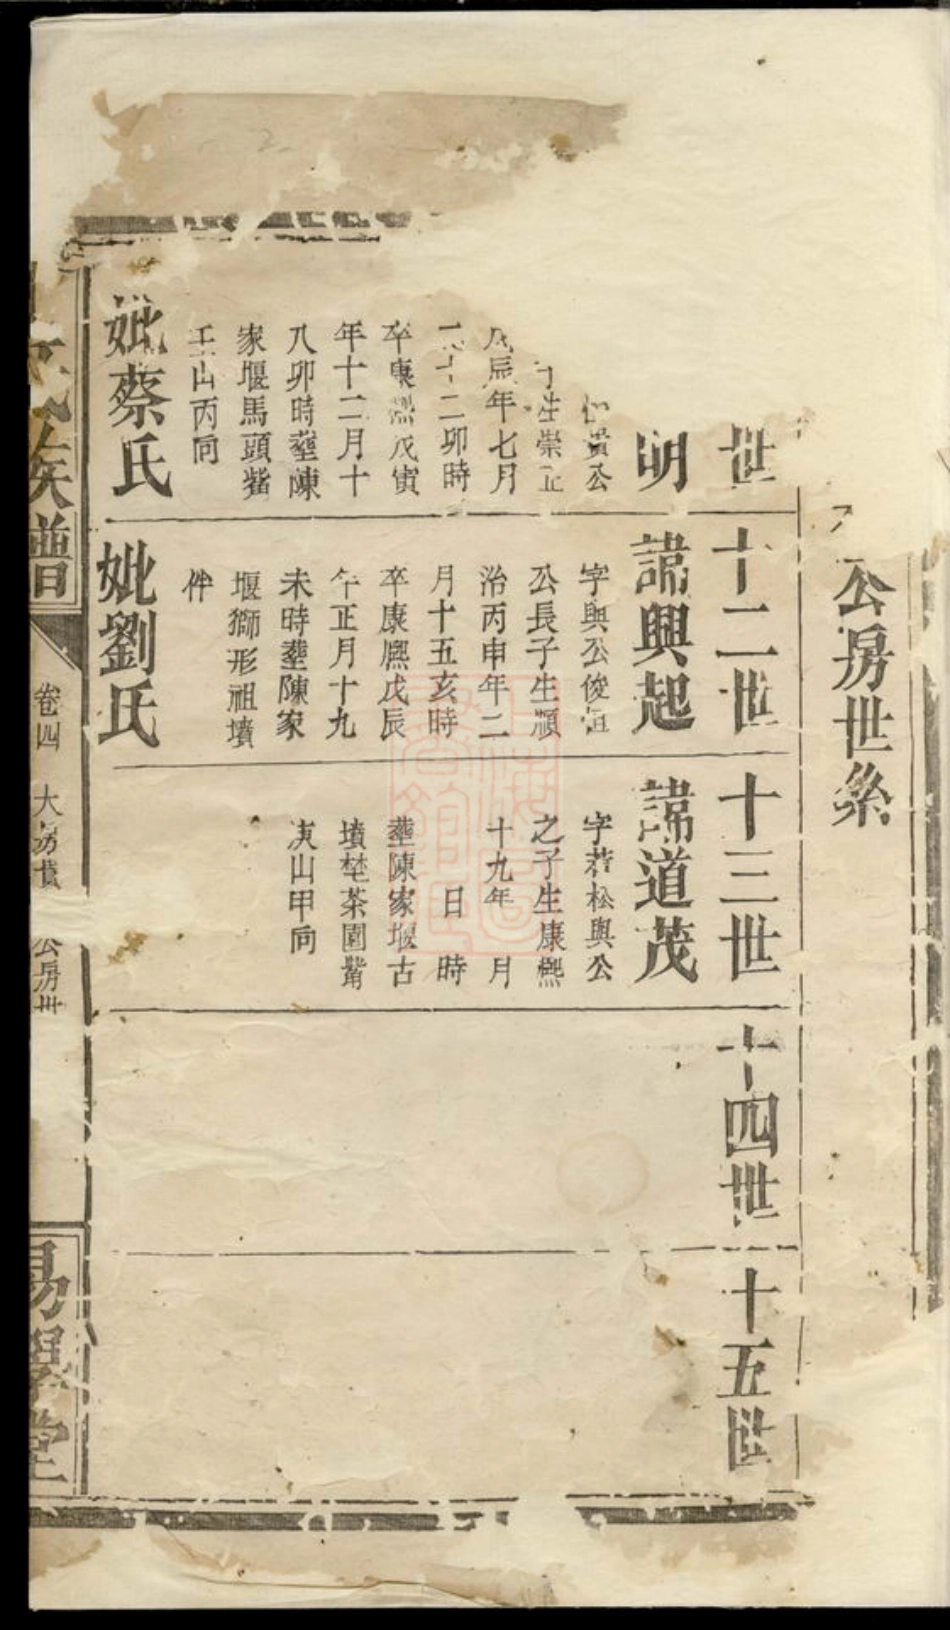 公房世系
世
明
貴公
子生崇正
戊辰年七月
二十二卯時
卒康熙戊寅
年十二月十
八卯時塟陳
家堰馬頭觜
壬山丙向
妣蔡氏
十二世
諱興起
字興公俊恒
公長子生順
治丙申年二
月十五亥時
卒康熙戊辰
年正月十九
未時塟陳家
堰獅形祖墳
件
妣劉氏
十三世
諱道茂
字若松與公
之子生康熙
十九年 月
日 時
塟陳家堰古
墳埜茶園觜
庚山甲向
十四世
十五世
氏族譜
卷四
大房 公房世
易學堂